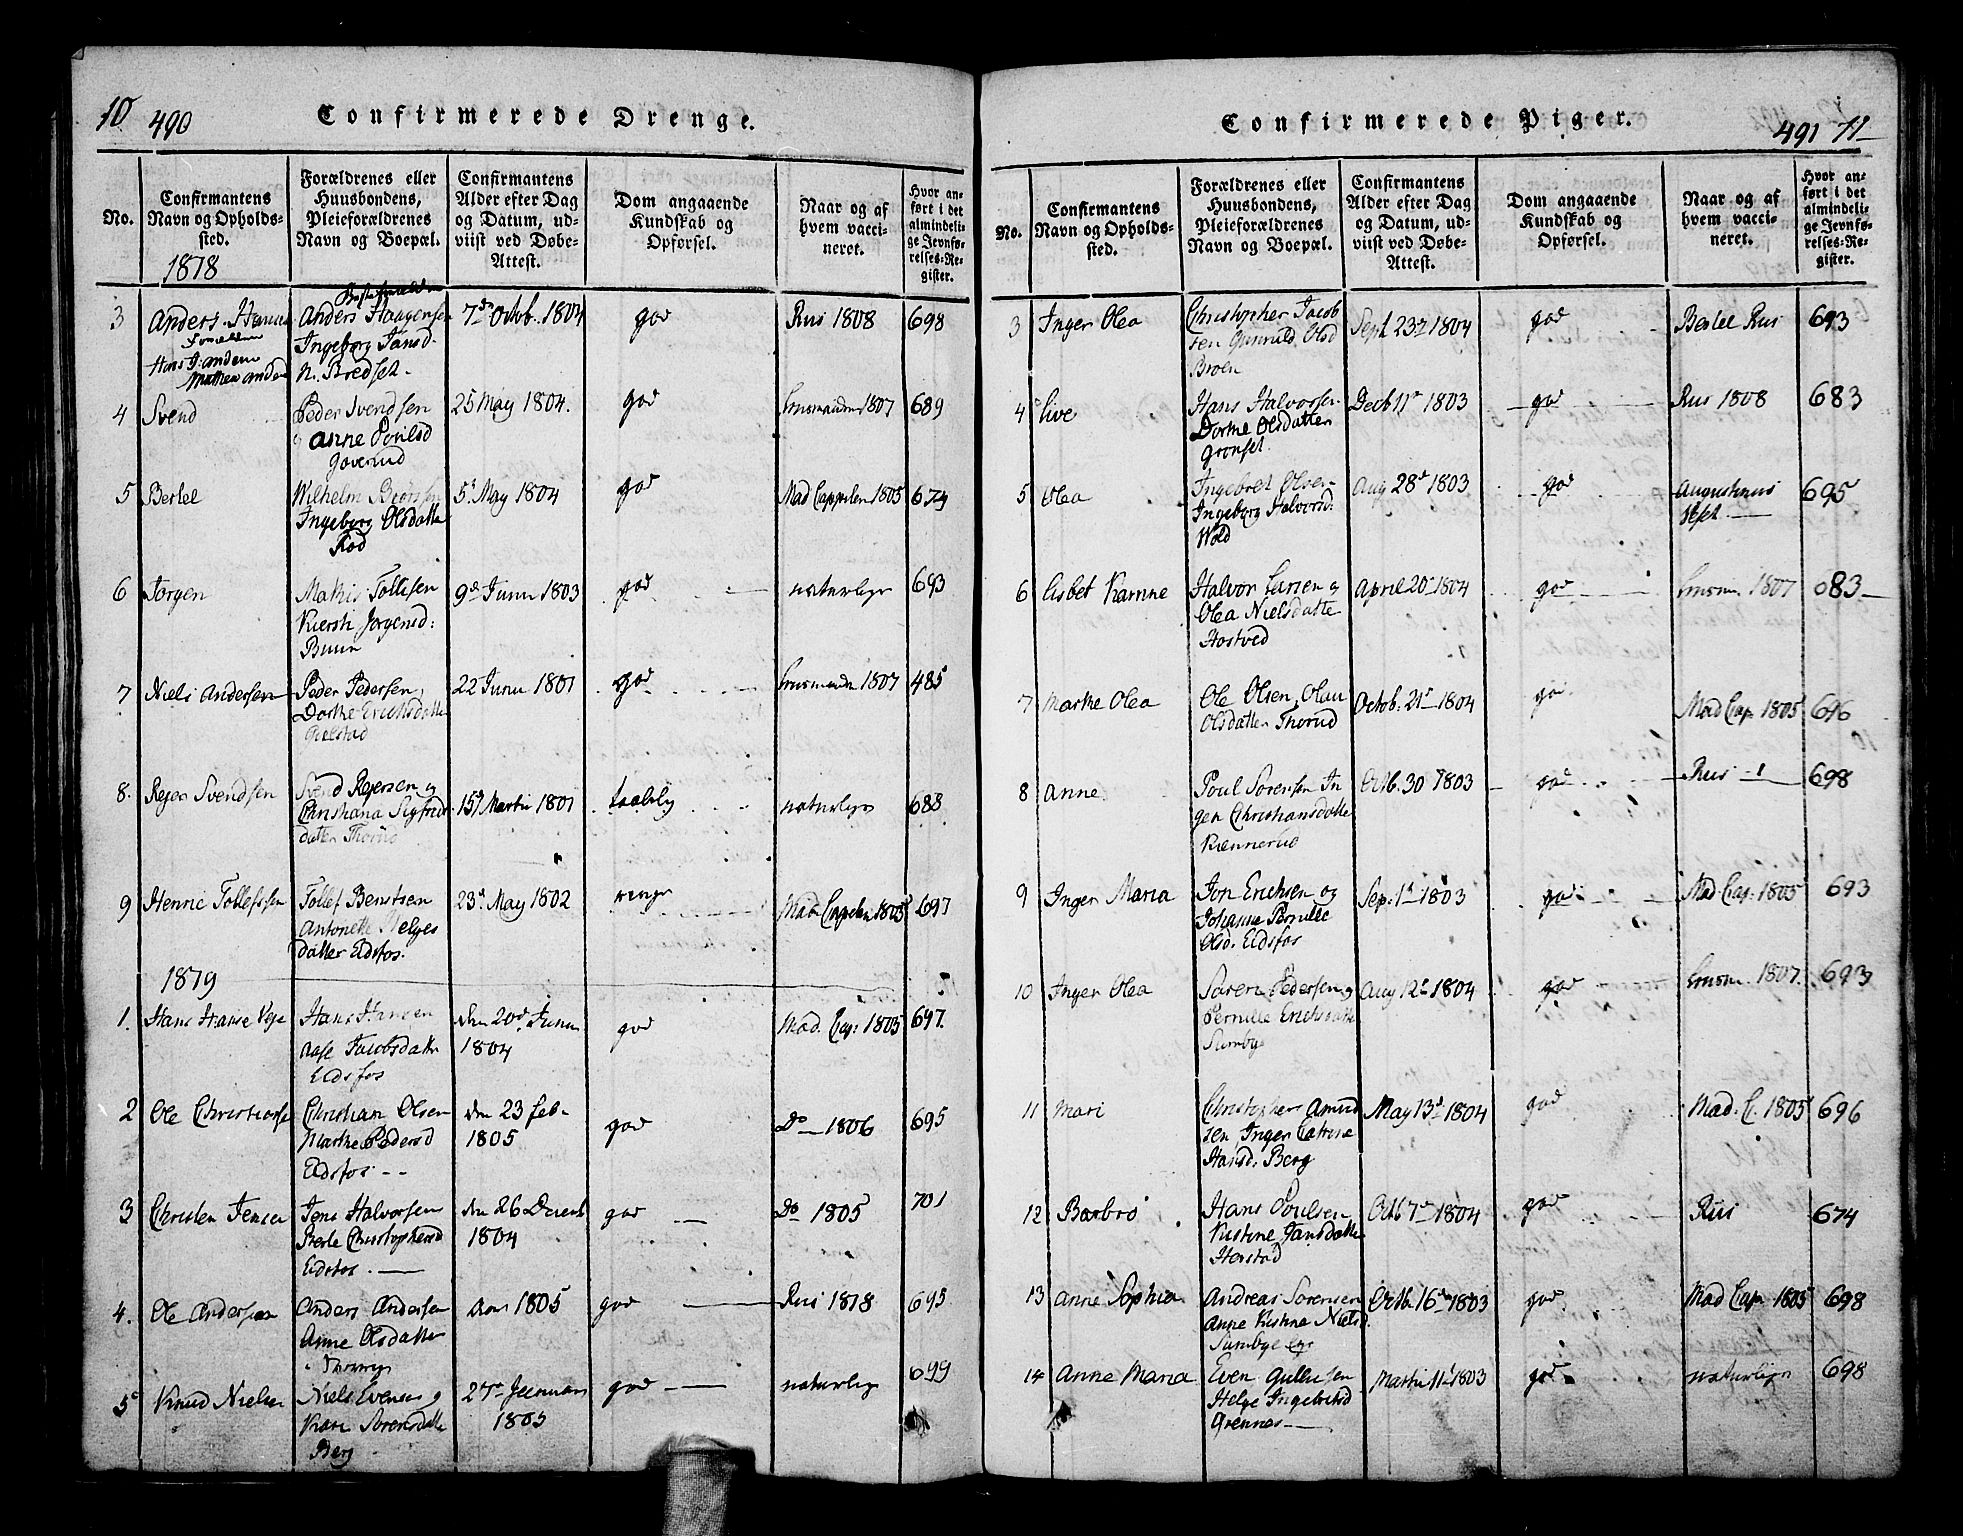 10 490
Confirmerede Drenge.
No.
Confirmantens
Navn og Opholds-
sted.
1818
Forældrenes eller
Huusbondens,
Pleieforældrenes
Navn og Boepæl.
Confirmantens
Alder efter Dag
og Datum, ud-
viist ved Døbe-
Attest.
Dom angaaende
Kundskab og
Opførsel.
Naar og af
hvem vacci-
neret.
Hvor an-
ført i det
almindeli-
ge Jevnfø-
relses-Re-
gister.
3 Anders Hansen Anders Haagensen 7de Octob. 1804 god Rus 1808 698
Ingeborg Jansd.
N. Bredset.
4 Svend Peder Svendsen 25 May 1804. god 1807 689
Anne Poulsd
5 Bertel Wilhelm 5t May 1804 god Mad Cappelen 1805 674
Ingeborg Olsdatter
Rød
6 Jørgen Mathis Tollefsen 9de Junii 1803 god naturlige 693
Kiersti Jørgensd:
Buun
7 Niels Andersen Peder Pedersen, 22 Junii 1801 god 1807 485
Dorthe Erichsdatter
8. Rejer Svendsen Svend Rejersen og 15de Martii 1801 taalelig naturlige 688
Christiana Sigfrids
datter Thorud
9 Henric Tollefsen Tollef Bentsen 23de May 1802 ringe Mad Cappelen 1805 697
Antonette Helges
datter Eidsfos.
1819
1. Hans Hanse Hans Hansen den 20de Junii god Mad. Cap. 1805 697.
Aase Jacobsdatter 1804
Eidsfos
2 Ole Christianse Christian Olsen den 23 Feb- god Do 1806 695
Marthe Pedersd 1805
Eidsfos
3 Christen Jensen Jens Halvorsen den 26 Decemb god Do 1805 701
Berte Christophersd 1804
Eidsfos
4. Ole Andersen Anders Andersen 1805 god Rus 1818 695
Anne Olsdatter
5 Knud Nielsen Niels Evensen og 27de god naturlige 699
Kari Sørensdatter 1805
Berg
Confirmerede Piger.
491 11
No.
Confirmantens
Navn og Opholds-
sted.
Forældrenes eller
Huusbondens,
Pleieforældrenes
Navn og Boepæl.
Confirmantens
Alder efter Dag
og Datum, ud-
viist ved Døbe-
Attest.
Dom angaaende
Kundskab og
Opførsel.
Naar og af
hvem vacci-
neret.
Hvor an-
ført i det
almindeli-
ge Jevnfø-
relses-Re-
gister.
3 Inger Olea Christopher Jacob Sept 23 1804 god Bertel Rus 693
sen Gunnild Olsd
Broen
4 Live Hans Halvorsen Decb 11 1803 god Rus 1808 683
Dorthe Olsdatter
Grønset
5 Olea Ingebret Olsen Aug 28 1803 god Augustinus 695
Ingeborg Halvorsd:
Wold
6 Lisbet Karine Halvor Larsen og April 20 1804 god 1807 683
Olea Nielsdatter
Hostved
7 Marthe Olea Ole Olsen, Octob. 21 1804 god Mad Cap. 1805 696
Olsdatter Thorud
8 Anne Poul Sørensen In Octb. 30 1803 god Rus 698
ger Christiansdatter
9 Inger Maria Jon Erichsen og Sep. 1 1803 god Mad. Cap. 1805 693
Johanne Pernille
Olsd. Eidsfos
10 Inger Olea Søren Pedersen og Aug 12 1804 god 1807. 693
Pernille Erichsdatter
Sumbye
11 Mari Christopher Amund May 13 1804 god Mad. C. 1805 696
sen, Inger Catrine
Hansd: Berg
12 Barbro Hans Poulsen Octb 7 1804 god Rus 674
Kistine Jansdatter
13 Anne Sophia Andreas Sørensen Octb. 16 1803 god Mad Cap. 1805 698
Anne Kistine Nielsd.
Sumbye
14 Anne Maria Even Gulliksen Martii 11 1803 god naturlige 698
Helge Ingebretsd
Grennes